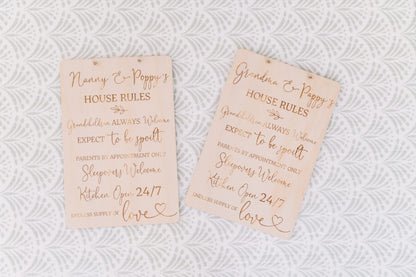 Nanny & Poppy's
HOUSE RULES
Grandchildren ALWAYS Welcome
EXPECT to be spoilt
PARENTS BY APPOINTMENT ONLY
Sleepovers Welcome
Kitchen Open 24/7
ENDLESS SUPPLY OF love
Grandma & Poppy's
HOUSE RULES
Grandchildren ALWAYS Welcome
EXPECT to be spoilt
PARENTS BY APPOINTMENT ONLY
Sleepovers Welcome
Kitchen Open 24/7
ENDLESS SUPPLY OF love